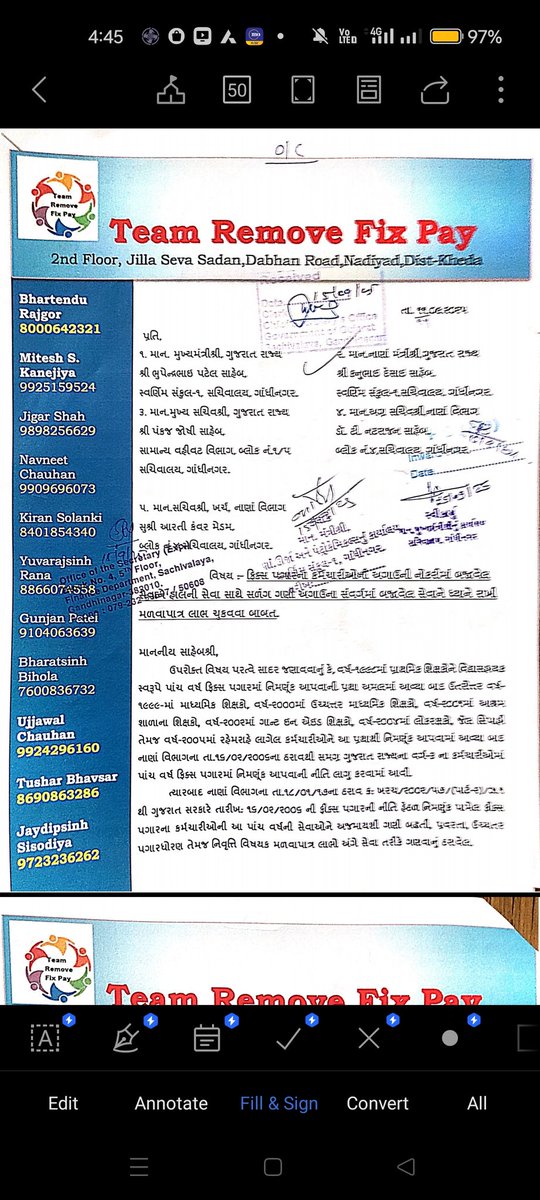 4:45
Vo
LTE
4G
97%
50
O/C
Team
Remove
Fix Pay
Team Remove Fix Pay
2nd Floor, Jilla Seva Sadan,Dabhan Road,Nadiyad,Dist-Kheda
Received
Bhartendu
Rajgor
8000642321
Mitesh S.
Kanejiya
9925159524
Jigar Shah
9898256629
Navneet
Chauhan
9909696073
Kiran Solanki
8401854340
Yuvarajsinh
Rana
8866074558
Gunjan Patel
9104063639
Bharatsinh
Bihola
7600836732
Ujjawal
Chauhan
9924296160
Tushar Bhavsar
8690863286
Jaydipsinh
Sisodiya
9723236262
પ્રતિ,
૧. માન. મુખ્યમંત્રીશ્રી, ગુજરાત રાજ્ય
શ્રી ભુપેન્દ્રભાઇ પટેલ સાહેબ,
સ્વર્ણિમ સંકુલ-૧, સચિવાલય, ગાંધીનગર.
૨. માન.નાણાં મંત્રીશ્રી,ગુજરાત રાજ્ય
શ્રી કનુભાઇ દેસાઇ સાહેબ,
સ્વર્ણિમ સંકુલ-૧,સચિવાલય, ગાંધીનગર
૩. માન.મુખ્ય સચિવશ્રી, ગુજરાત રાજ્ય
શ્રી પંકજ જોષી સાહેબ,
સામાન્ય વહીવટ વિભાગ, બ્લોક નં.૧/૫
સચિવાલય, ગાંધીનગર.
૪. માન.અગ્ર સચિવશ્રી,નાણાં વિભાગ
ડૉ. ટી. નટરાજન સાહેબ,
બ્લોક નં.૪,સચિવાલય, ગાંધીનગર
૫. માન.સચિવશ્રી, ખર્ચ, નાણાં વિભાગ
સુશ્રી આરતી કંવર મેડમ,
બ્લોક નં.૪,સચિવાલય, ગાંધીનગર.
Office of the Secretary (Exp.)
Block No. 4, 5th Floor,
Finance Department, Sachivalaya,
Gandhinagar-382010.
વિષય :- ફિક્સ પગારના કર્મચારીઓની અગાઉની નોકરીમાં બજાવેલ
સેવાને હાલની સેવા સાથે સળંગ ગણી અગાઉના સંવર્ગમાં બજાવેલ સેવાને ધ્યાને રાખી
મળવાપાત્ર લાભ ચુકવવા બાબત.
માનનીય સાહેબશ્રી,
ઉપરોક્ત વિષય પરત્વે સાદર જણાવવાનું કે, વર્ષ-૧૯૯૮માં પ્રાથમિક શિક્ષકોને વિદ્યાસહાયક
સ્વરૂપે પાંચ વર્ષ ફિક્સ પગારમાં નિમણૂંક આપવાની પ્રથા અમલમાં આવ્યા બાદ ઉત્તરોત્તર વર્ષ-
૧૯૯૯-માં માધ્યમિક શિક્ષકો, વર્ષ-૨૦૦૦માં ઉચ્ચત્તર માધ્યમિક શિક્ષકો, વર્ષ-૨૦૦૧માં આશ્રમ
શાળાના શિક્ષકો, વર્ષ-૨૦૦૨માં ગ્રાન્ટ ઇન એઇડ શિક્ષકો, વર્ષ-૨૦૦૪માં લોકરક્ષકો, જેલ સિપાહી
તેમજ વર્ષ-૨૦૦૫માં રહેમરાહે લાગેલ કર્મચારીઓને આ પ્રથાથી નિમણૂંક આપવામાં આવ્યા બાદ
નાણાં વિભાગના તા.૧૬/૦૨/૨૦૦૬ના ઠરાવથી સમગ્ર ગુજરાત રાજ્યના વર્ગ-૩ ના કર્મચારીઓમાં
પાંચ વર્ષ ફિક્સ પગારમાં નિમણૂંક આપવાની નીતિ લાગુ કરવામાં આવી.
ત્યારબાદ નાણાં વિભાગના તા.૧૮/૦૧/૧૭ના ઠરાવ ક્રઃ ખરચ/૨૦૦૨/૫૭/(પાર્ટ-૨)/ઝ.૧
થી ગુજરાત સરકારે તારીખ: ૧૬/૦૨/૨૦૦૬ ની ફીક્સ પગારની નીતિ હેઠળ નિમણૂંક પામેલ ફીક્સ
પગારના કર્મચારીઓની આ પાંચ વર્ષની સેવાઓને અજમાયશી ગણી બઢતી, પ્રવરતા, ઉચ્ચત્તર
પગારધોરણ તેમજ નિવૃત્તિ વિષયક મળવાપાત્ર લાભો અંગે સેવા તરીકે ગણવાનું ઠરાવેલ.
Team
Remove
Fix Pay
Team Remove Fix Pay
A
Edit
Annotate
Fill & Sign
Convert
All